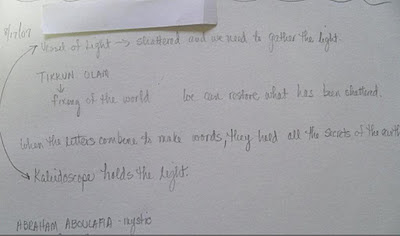 8/17/07
Vessel of Light → shattered and we need to gather the light.
TIKKUN OLAM
↓
fixing of the world We can restore what has been shattered.
When the letters combine to make words, they hold all the secrets of the
Kaleidoscope holds the light.
ABRAHAM ABOULAFIA - mystic